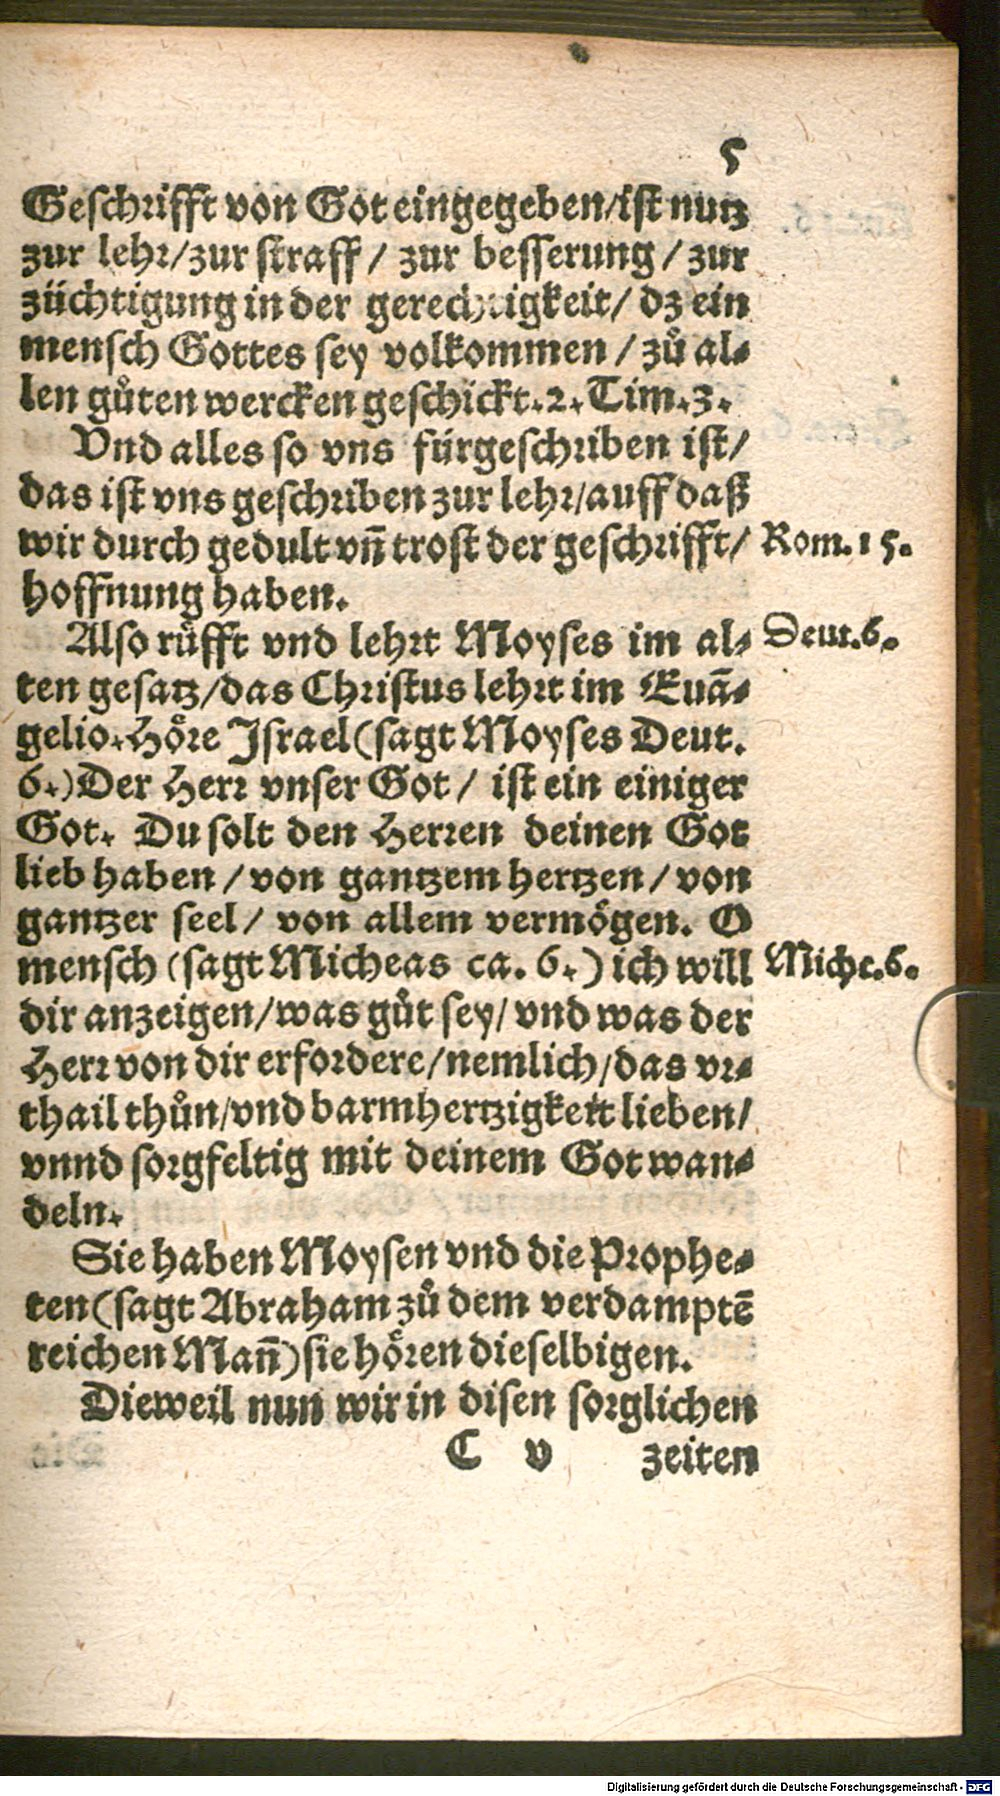 5
Geschrifft von Got eingegeben/ist nutz
zur lehr/zur straff/ zur besserung/zur
züchtigung in der gerechtigkeit/ dz ein
mensch Gottes sey volkommen/zů al-
len gůten wercken geschickt. 2. Tim. 3.
Vnd alles so vns fürgeschriben ist/
das ist vns geschriben zur lehr/auff daß
wir durch gedult vñ trost der geschrifft/ Rom. 15.
hoffnung haben.
Also rüfft vnd lehrt Moyses im al- Deut. 6.
ten gesatz/das Christus lehrt im Euã-
gelio. Höre Israel (sagt Moyses Deut.
6.) Der Herr vnser Got/ ist ein einiger
Got. Du solt den Herren deinen Got
lieb haben/von gantzem hertzen/von
gantzer seel/ von allem vermögen. O
mensch (sagt Micheas ca. 6.) ich will Miche. 6.
dir anzeigen/was gůt sey/vnd was der
Herr von dir erfordere/nemlich/das vr-
thail thůn/vnd barmhertzigkeit lieben/
vnnd sorgfeltig mit deinem Got wan-
deln.
Sie haben Moysen vnd die Prophe-
ten (sagt Abraham zů dem verdamptẽ
reichen Mañ) sie hören dieselbigen.
Dieweil nun wir in disen sorglichen
C v zeiten
Digitalisierung gefördert durch die Deutsche Forschungsgemeinschaft - DFG